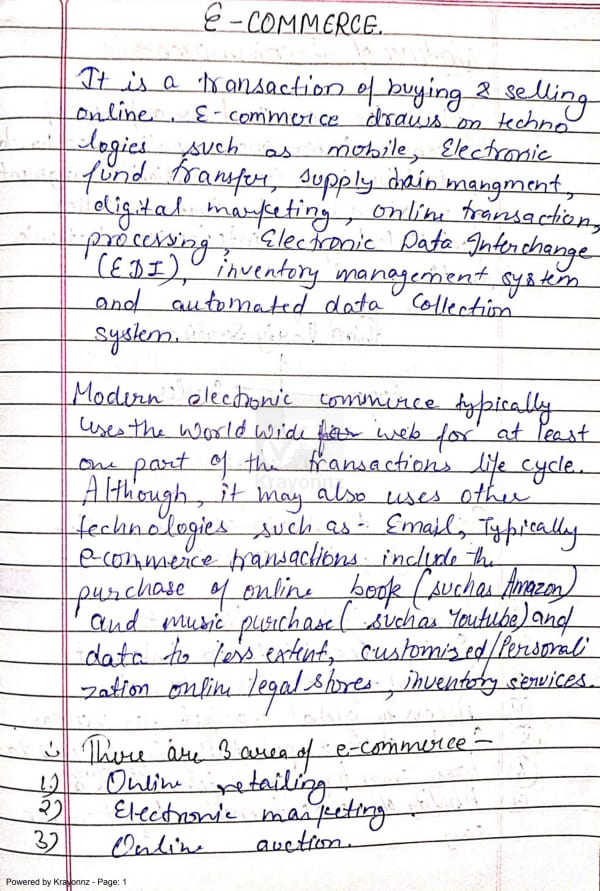 E-COMMERCE.
It is a transaction of buying & selling
online. E-commerce draws on techno
logies such as mobile, Electronic
fund transfer, supply chain mangment,
digital marketing, online transaction,
processing, Electronic Data Interchange
(EDI), inventory management system
and automated data collection
system.
Modern electronic commerce typically
uses the world wide web for at least
one part of the transactions life cycle.
Krayonnz
Although, it may also uses other
technologies such as - Email, Typically
e-commerce transactions include the
purchase of online book (such as Amazon)
and music purchase (such as Youtube) and
data to less extent, customized/Personali
zation online legal stores, inventory services.
There are 3 area of e-commerce :-
1.) Online retailing.
2) Electronic marketing.
3) Online auction.
Powered by Krayonnz - Page: 1